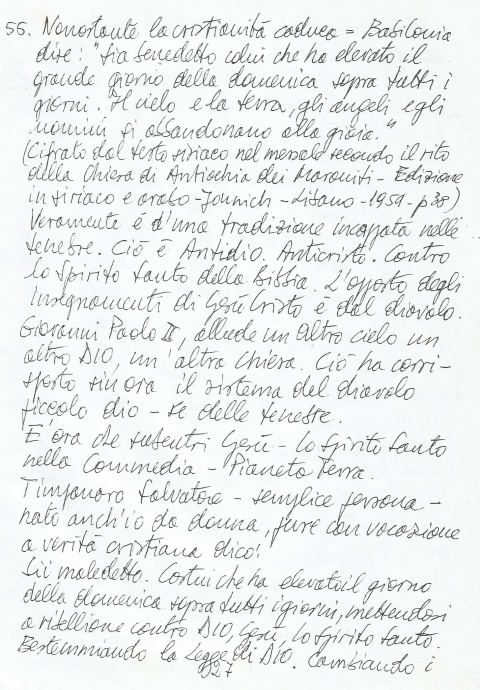 55. Nonostante la cristianità caduca = Babilonia
dice: "Sia benedetto colui che ha elevato il
grande giorno della domenica sopra tutti i
giorni. Il cielo e la terra, gli angeli e gli
uomini si abbandonano alla gioia."
(Cifrato dal testo siriaco nel messale secondo il rito
della Chiesa di Antiochia dei Maroniti - Edizione
in siriaco e arabo - Jounich - Libano - 1959 - p 38)
Veramente é d'una tradizione incappata nelle
tenebre. Ciò é Antidio. Anticristo. Contro
lo Spirito Santo della Bibbia. L'opposto degli
insegnamenti di Gesù Cristo é dal diavolo.
Giovanni Paolo II, allude un altro cielo un
altro DIO, un'altra chiesa. Ciò ha corri-
sposto sin ora il sistema del diavolo
piccolo dio - re delle tenebre.
É ora che subentri Gesù - lo Spirito Santo
nella Commedia - Pianeta Terra.
Timpanaro Salvatore - semplice persona -
nato anch'io da donna, pure con vocazione
a verità cristiana dico:
Sii maledetto. Costui che ha elevato il giorno
della domenica sopra tutti i giorni, mettendosi
a ribellione contro DIO, Gesù, lo Spirito Santo.
Bestemmiando la Legge di DIO. Cambiando i
027